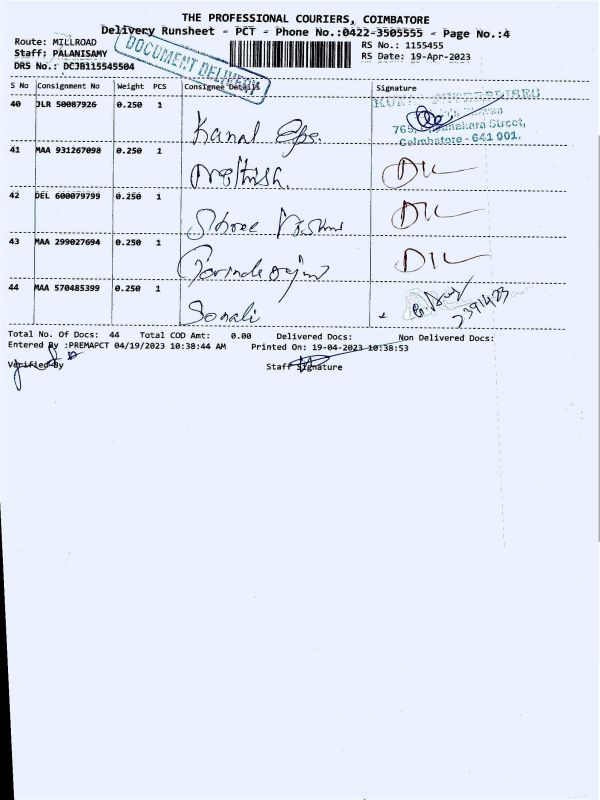 THE PROFESSIONAL COURIERS, COIMBATORE
Delivery Runsheet - PCT - Phone No.:0422-3505555 - Page No.:4
Route: MILLROAD
RS No.: 1155455
Staff: PALANISAMY
RS Date: 19-Apr-2023
DRS No.: DCJB115545504
DOCUMENT DELIVERY
S No Consignment No Weight PCS Consignee Details Signature
40 JLR 50087926 0.250 1
765, Street,
Coimbatore - 641 001.
41 MAA 931267098 0.250 1 DIL
42 DEL 600079799 0.250 1 Shree DIL
43 MAA 299027694 0.250 1 DIL
44 MAA 570485399 0.250 1 Sonali
Total No. Of Docs: 44 Total COD Amt: 0.00 Delivered Docs: Non Delivered Docs:
Entered By :PREMAPCT 04/19/2023 10:38:44 AM Printed On: 19-04-2023 10:38:53
Verified By Staff Signature